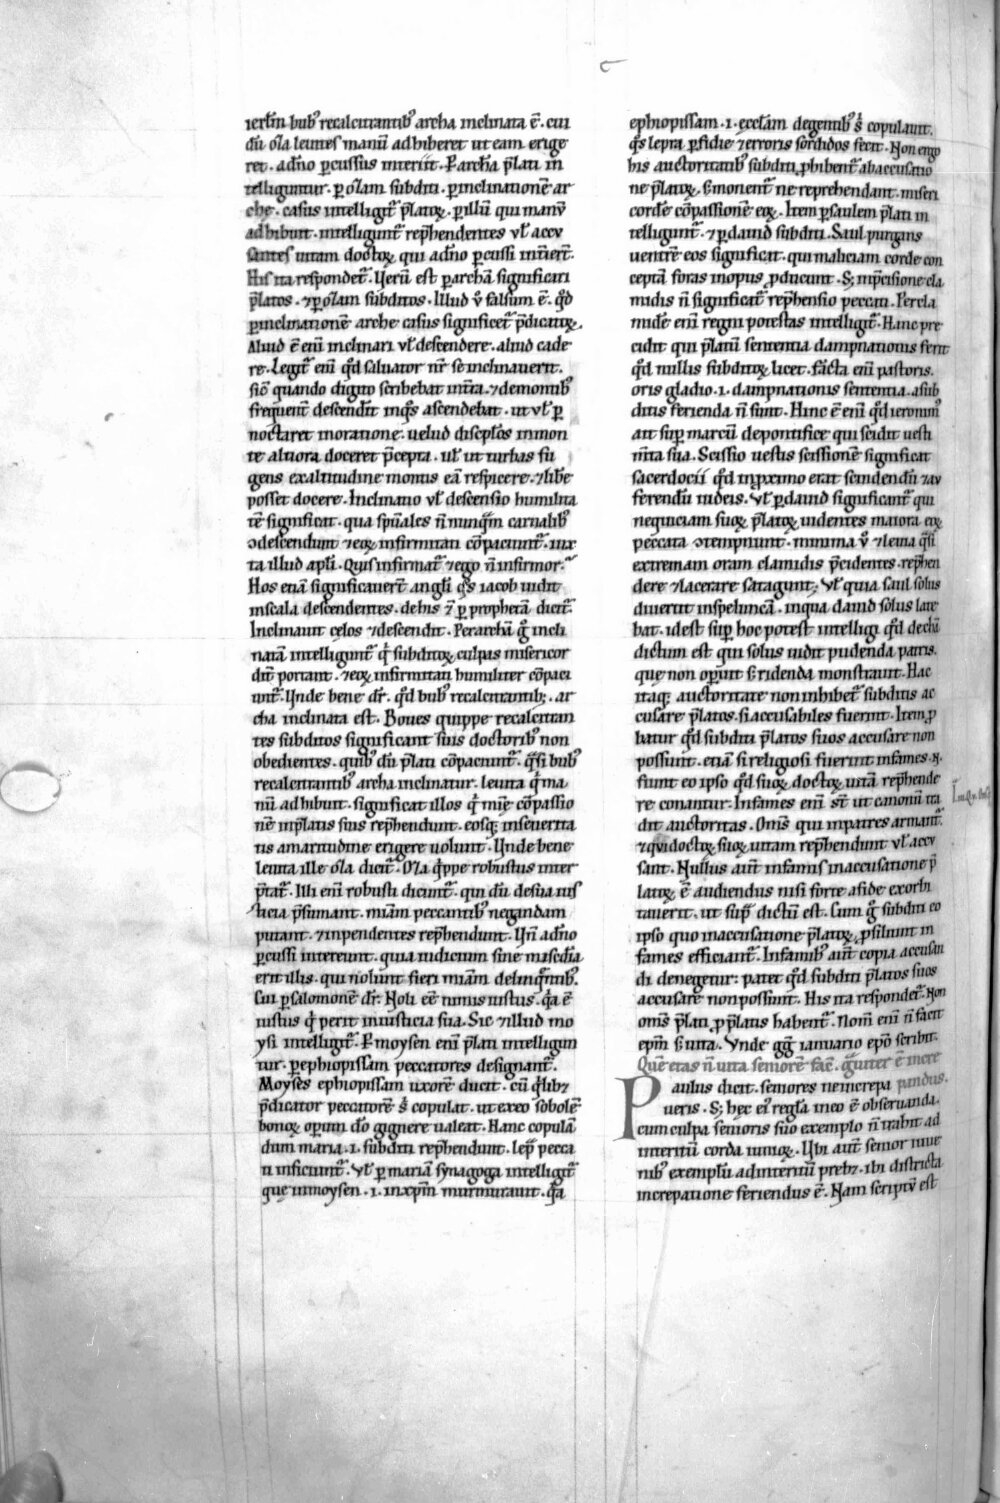 ierl̄m bub᷒ recalcitrantib᷒ archa inclinata ē. cui
dū oƚa leuites manū adhiberet ut eam erige
ret. a dn̄o ꝑcussus interiit. Ꝑ archā p̄lati in
telliguntur. ꝑ oƚam subditi. ꝑ inclinationē ar
che. casus intelligit᷑ p̄latoꝝ. ꝑ illū qui manū
adhibuit. intelligunt᷑ rep̄hendentes ul̄ accu
santes uitam doctoꝝ qui a dn̄o ꝑcussi intierūt.
His ita respondet᷑. Uerū est ꝑ archā significari
p̄latos. ⁊ ꝑ oƚam subditos. Illud ū falsum ē. qd̄
ꝑ inclinationē arche casus significet᷑ p̄dicatoꝝ.
Aliud ē eni᷑ inclinari ul̄ descendere. aliud cade
re. Legit᷑ eni᷑ qd̄ saluator nr̄ se inclinauerit.
sic̄ quando digito scribebat in t̄ra. ⁊ de montib᷒
frequent᷑ descendit in q̊s ascendebat. ut ul̄ ꝑ
noctaret in oratione. uelud discipl̄os in mon
te altiora doceret p̄cepta. ul̄ ut turbas fu
giens ex altitudine montis eā respicere. ⁊ libe
posset docere. Inclinatio ul̄ descensio humilita
tē significat. qua spūales n̄ nunquā carnalib᷒
ɔdescendunt ⁊ eoꝝ infirmitati cōpaciunt᷑. iux
ta illud apl̄i. Quis infirmat᷑ ⁊ ego n̄ infirmor.
Hos etiā significauer̄t angl̄i q̊s iacob uidit
in scala descendentes. de his ⁊ ꝑ prophetā dicit᷑.
Inclinauit cęlos ⁊ descendit. Per archā g̊ incli
natā intelligunt᷑ qi subditoꝝ culpas misericor
dit᷑ portant. ⁊ eoꝝ infirmitati humiliter cōpaci
unt᷑. Unde bene dr̄. qd̄ bub᷒ recalcitrantib; ar
cha inclinata est. Boues quippe recalcitran
tes subditos significant suis doctorib᷒ non
obedientes. quib᷒ dū p̄lati cōpaciunt᷑. q̄si bub᷒
recalcitrantib᷒ archa inclinatur. leuita qi ma
nū adhibuit. significat illos qi mīe cōpassio
nē in p̄latis suis rep̄hendunt. eosq; in seuerita
tis amaritudinē erigere uolunt. Unde bene
leuita ille oƚa dicit᷑. Oƚa qippe robustus inter
p̄tat᷑. Illi eni᷑ robusti dicunt᷑. qui dū de sua ius
ticia p̄sumant. miam peccantib᷒ negandam
putant. ⁊ inpendentes rep̄hendunt. Un̄ a dn̄o
ꝑcussi intereunt. quia iudicium sine misc̄dia
erit illis. qui nolunt fieri miam delinquentib᷒.
Cui ꝑ salomonē dr̄. Noli eē nimis iustus. qa ē
iustus qi perit in iusticia sua. Sic ⁊ illud mo
ysi intelligit᷑. Ꝑ moysen eni᷑ p̄lati intelligun
tur. ꝑ ephiopissam peccatores designant᷑.
Moyses ephiopissam uxorē ducit. cū q̄libꝫ
p̄dicator peccatorē s᷑ copulat. ut ex eo sobolē
bonoꝝ operum dō gignere ualeat. Hanc copulā
dum maria .i. subditi rep̄hendunt. lep̄ pecca
ti inficiunt᷑. Ul̄ ꝑ mariā synagoga intelligit᷑
quę in moysen .i. in xp̄m murmurauit. qa
ephiopissam .i. eccl̄am de gentib᷒ s᷑ copulauit.
q̊s lepra ꝑfidie ⁊ erroris sordidos fecit. Non ergo
his auctoritatib᷒ subditi ꝓhibent᷑ ab accusatio
ne p̄latoꝝ. s᷑ monent᷑ ne reprehendant. miseri
cordē cōpassionē eoꝝ. Item ꝑ saulem p̄lati in
telligunt᷑. ⁊ ꝑ dauid subditi. Saul purgans
uentrē eos significat. qui maliciam corde con
ceptā foras in opus ꝓducunt. S; in p̄cisione cla
midis n̄ significat᷑ rep̄hensio peccati. Per cla
midē eni᷑ regni potestas intelligit᷑. Hanc pre
cidit qui p̄latū sententia dampnationis ferit
qd̄ nullis subditoꝝ licet. fācta eni᷑ pastoris.
oris gladio .i. dampnationis sententia. a sub
ditis ferienda n̄ sunt. Hinc ē eni᷑ qd̄ ieronim᷒
ait sup̄ marcū de pontifice qui scidit uesti
m̄ta sua. Scissio uestis scissionē significat
sacerdocii qd̄ in ꝓximo erat scindendū ⁊ au
ferendū iudeis. Ul̄ ꝑ dauid significant᷑ qui
nequiciam suoꝝ p̄latoꝝ uidentes maiora eoꝝ
peccata ɔtempnunt. minima ū ⁊ leuia q̄si
extremam oram clamidis p̄cidentes. rep̄hen
dere ⁊ lacerare satagunt; Ul̄ quia saul solus
diuertit in spelunca. in qua dauid solus late
bat. id est sup̄ hoc potest intelligi qd̄ de cham
dictum est qui solus uidit pudenda patris.
quę non opuit s᷑ ridenda monstrauit. Hac
itaq; auctoritate non inhibet᷑ subditis ac
cusare p̄latos. si accusabiles fuerint. Item ꝓ
batur qd̄ subditi p̄latos suos accusare non
possunt. etiā si religiosi fuerint infames .n.
fiunt eo ipso qd̄ suoꝝ doctoꝝ uitā rep̄hende
re conantur. Infames eni᷑ st̄ ut canonū tra
dit auctoritas. Om̄s qui in patres armant᷑.
⁊ qui doctoꝝ suoꝝ uitam rep̄hendunt ul̄ accu
sant. Nullus aut᷑ infamis in accusatione p̄
latoꝝ ē audiendus nisi forte a fide exorbi
tauerit. ut sup᷑ dictū est. Cum g̊ subditi eo
ipso quo in accusatione p̄latoꝝ ꝓsiliunt in
fames efficiant᷑. Infamib᷒ aut᷑ copia accusan
di denegetur: patet qd̄ subditi p̄latos suos
accusare non possunt. His ita respondet᷑. Non
om̄s p̄lati ꝓ p̄latis habent᷑. Nom̄ eni᷑ n̄ facit
ep̄m s᷑ uita. Unde gg̅ ianuario ep̄o scribit.
Quē etas n̄ uita seniorē fac̄. g̊uiter ē incre
Paulus dicit. seniores ne increpa pandus.
ueris. S; hęc ei᷒ regl̄a in eo ē obseruanda.
cum culpa senioris suo exemplo n̄ trahit ad
interitū corda iunioꝝ. Ubi aut᷑ senior iuue
nib᷒ exemplū ad interitū prebꝫ. ibi districta
increpatione feriendus ē. Nam scriptū est